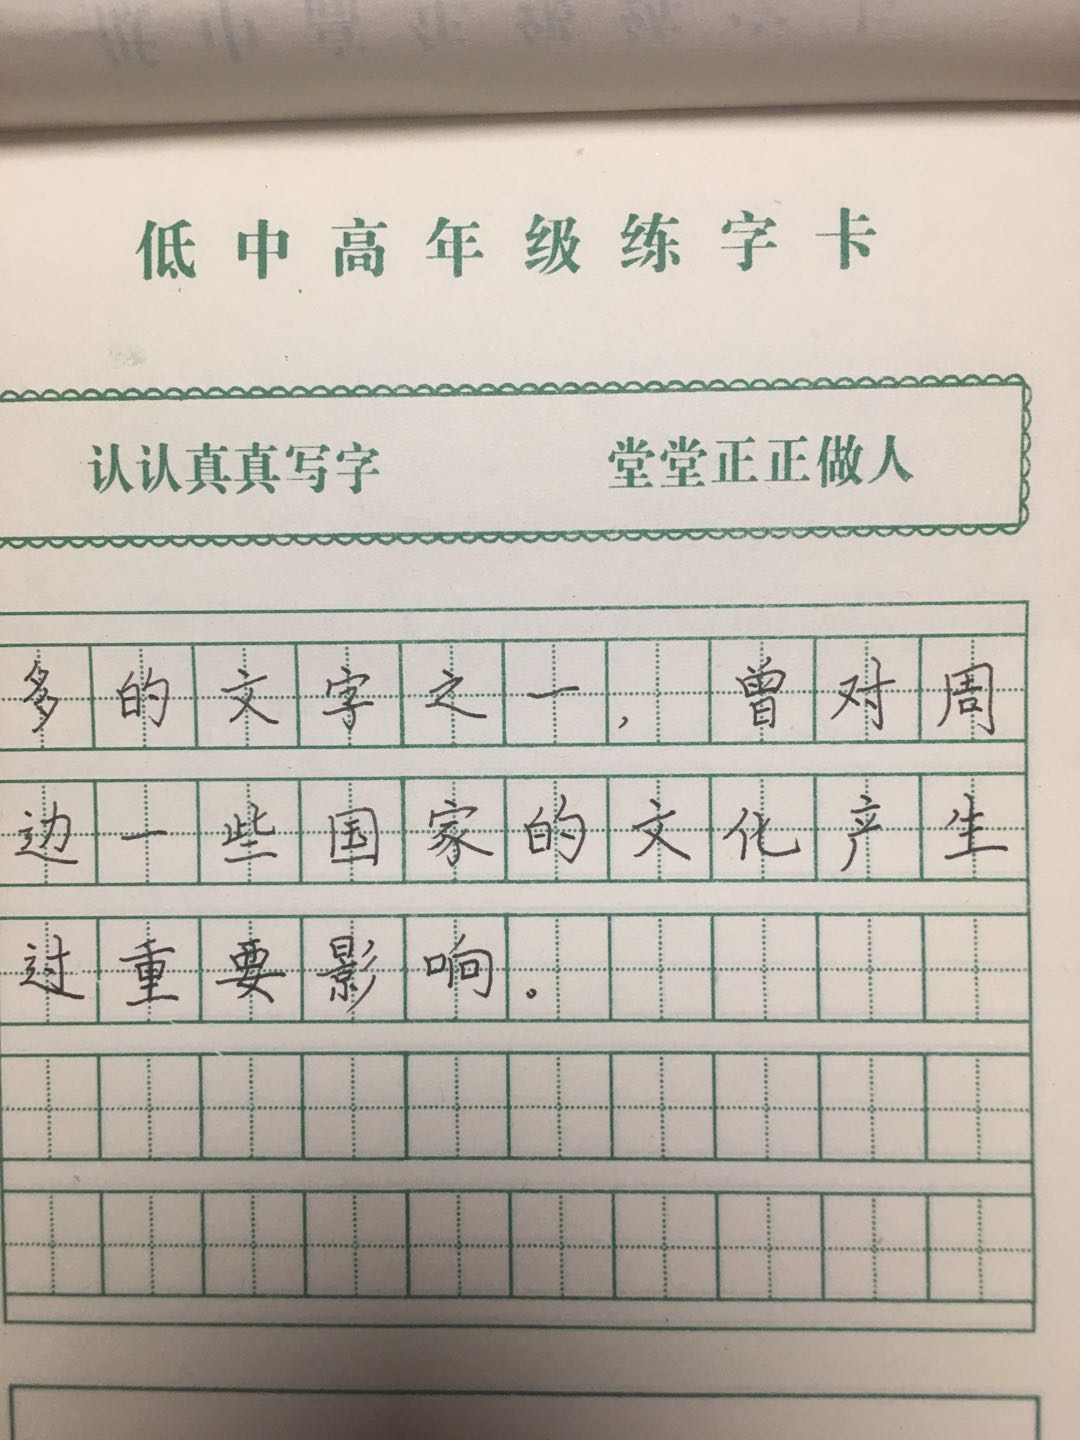 低中高年级练字卡
认认真真写字 堂堂正正做人
多的文字之一,曾对周
边一些国家的文化产生
过重要影响。